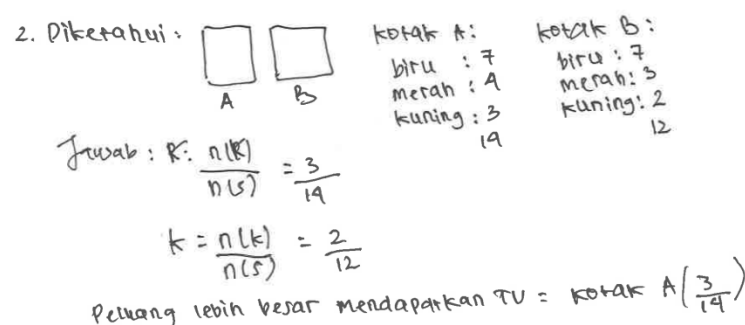 2. Diketahui :
A B
kotak A:
biru : 7
merah : 4
kuning : 3
14
kotak B:
biru : 7
merah : 3
kuning : 2
12
Jawab : K: n(K)/n(s) = 3/14
k = n(k)/n(s) = 2/12
Peluang lebih besar mendapatkan TV = kotak A (3/14)